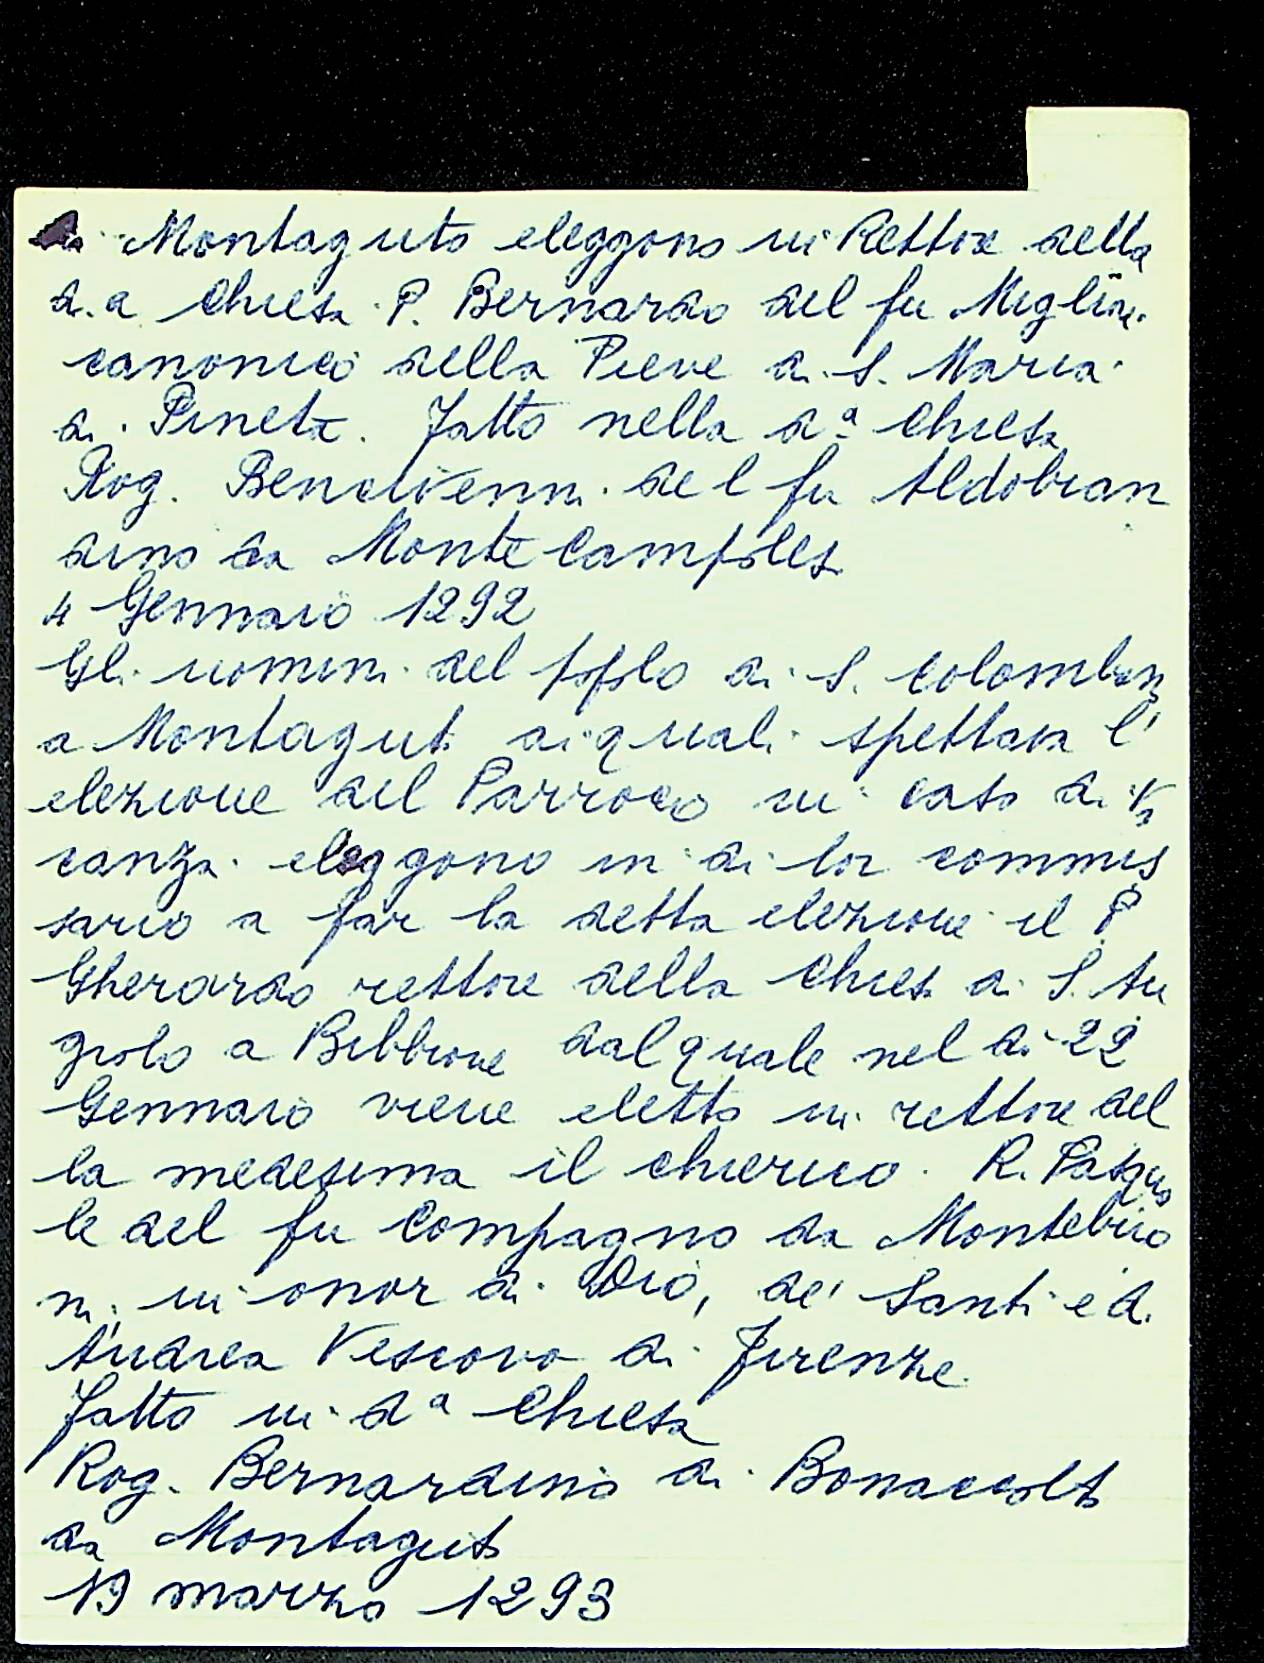 da Montaguto eleggono in Rettore della
d.a Chiesa P. Bernardo del fu Miglior.
canonico della Pieve di S. Maria
di Pineta. Fatto nella d.ª Chiesa
Rog. Bencivenni del fu Aldobran
dino da Monte Campolesi
4 Gennaio 1292
Gli uomini del popolo di S. Colomban
a Montaguto ai quali spettava l'
elezione del Parroco in caso di va
canza eleggono in di lor commis
sario a far la detta elezione il P.
Gherardo rettore della Chiesa di S. An
giolo a Bibbione dal quale nel di 22
Gennaio viene eletto in rettore del
la medesima il chierico R. Pasqua
le del fu Compagno da Montebuo
ni, in onor di Dio, de' Santi e di
Andrea Vescovo di Firenze.
Fatto in dª Chiesa
Rog. Bernardino di Bonaccolto
da Montaguto
19 marzo 1293